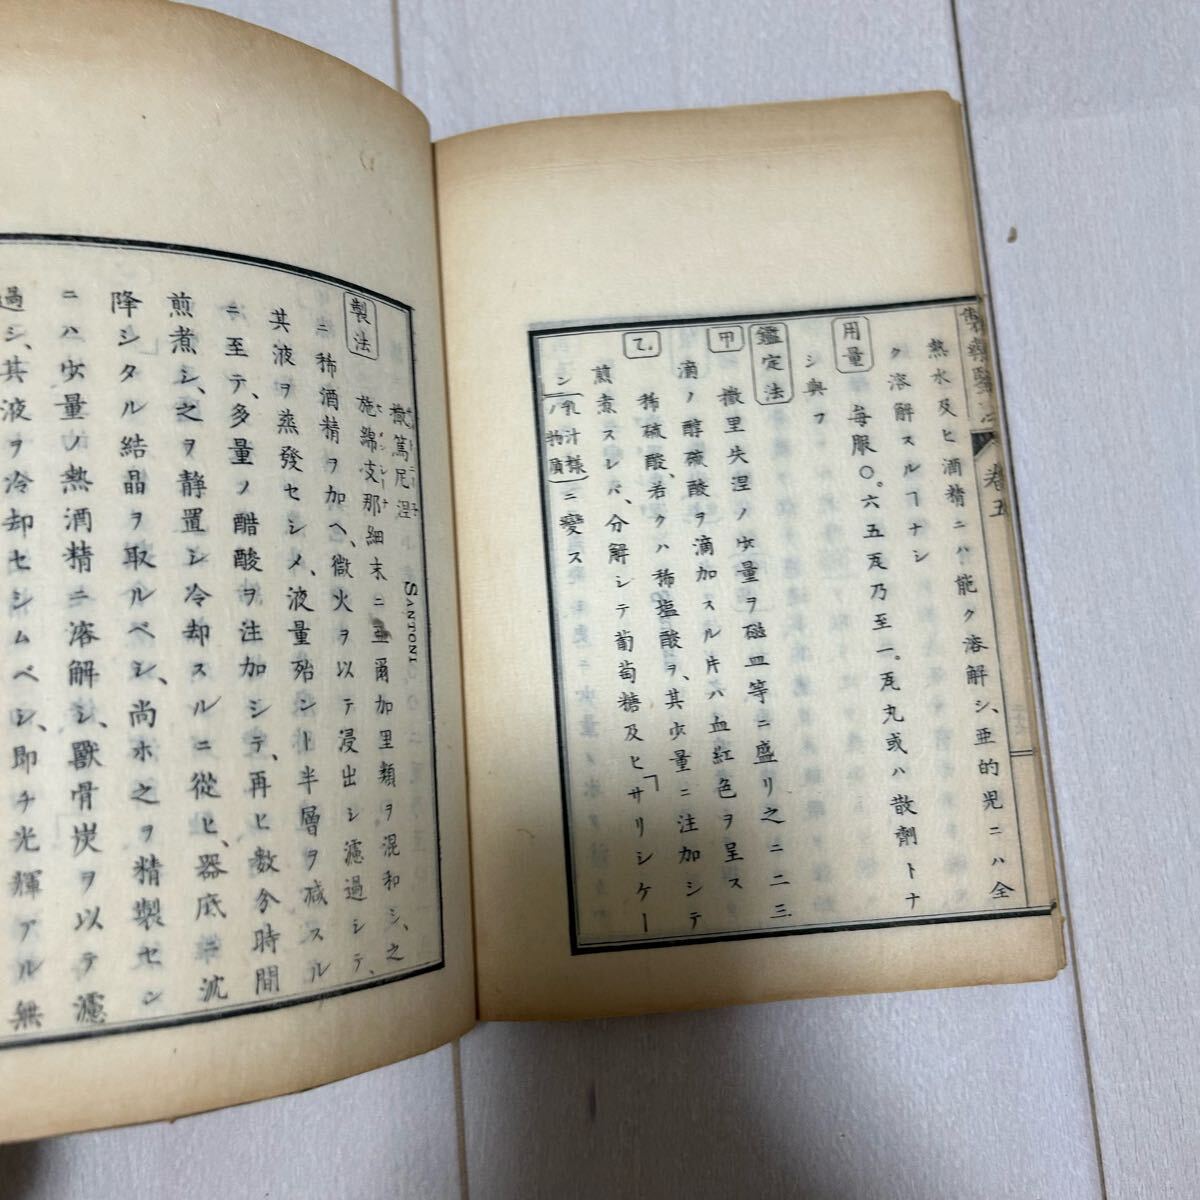 卷五
熱水及ヒ酒精ニハ能ク溶解シ、亜的児ニハ全
ク溶解スルヿナシ
用量 毎服〇。六五瓦乃至一。瓦丸或ハ散劑トナ
シ與フ
鑑定法
甲 撒里失涅ノ少量ヲ磁皿等ニ盛リ之ニ二三
滴ノ醇硫酸ヲ滴加スル片ハ血紅色ヲ呈ス
乙. 稀硫酸、若クハ稀塩酸ヲ、其少量ニ注加シテ
煎煮スレバ、分解シテ葡萄糖及ヒ「サリシケー
シ 乳汁様ノ物質 ニ變ス
撒篤尼涅 SANTONI
製法 施綿支那細末ニ亜爾加里類ヲ混和シ、之
ニ稀酒精ヲ加ヘ、微火ヲ以テ浸出シ濾過シテ、
其液ヲ蒸發セシメ、液量殆ント半層ヲ减スル
ニ至テ、多量ノ醋酸ヲ注加シテ、再ヒ數分時間
煎煮シ、之ヲ静置シ冷却スルニ從ヒ、器底ニ沈
降シタル結晶ヲ取ルベシ、尚ホ之ヲ精製セン
ニハ少量ノ熱酒精ニ溶解シ、獸骨炭ヲ以テ濾
過シ、其液ヲ冷却セシムベシ、即チ光輝アル無